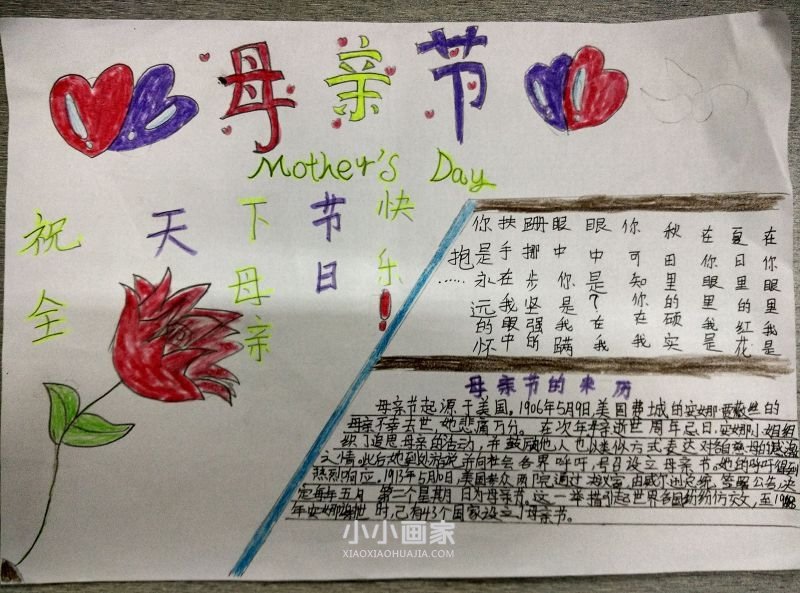 母亲节
Mother's Day
祝全
天
下母亲
节日
快乐!
在你眼里我是
夏日里的红花
在你眼里我是
秋田里的硕实
你可知你在我
眼中是?在我
眼中你是我蹒
跚挪步坚强的
扶手在我眼中
你是永远的怀
抱……
母亲节的来历
母亲节起源于美国。1906年5月9日,美国费城的安娜 的
母亲不幸去世,她悲痛万分。在次年母亲逝世周年忌日,安娜小姐组
织了追思母亲的活动,并鼓励他人也以类似方式表达对各自慈母的感激
之情。此后她到处游说并向社会各界呼吁,号召设立母亲节。她的呼吁得到
热烈响应。1913年5月10日,美国参众两院通过 ,由威尔逊总统签署公告,决
定每年五月第二个星期日为母亲节。这一举措引起世界各国纷纷仿效,至1948
年安娜谢世时,已有43个国家设立了母亲节。
小小画家
XIAOXIAOHUAJIA.COM